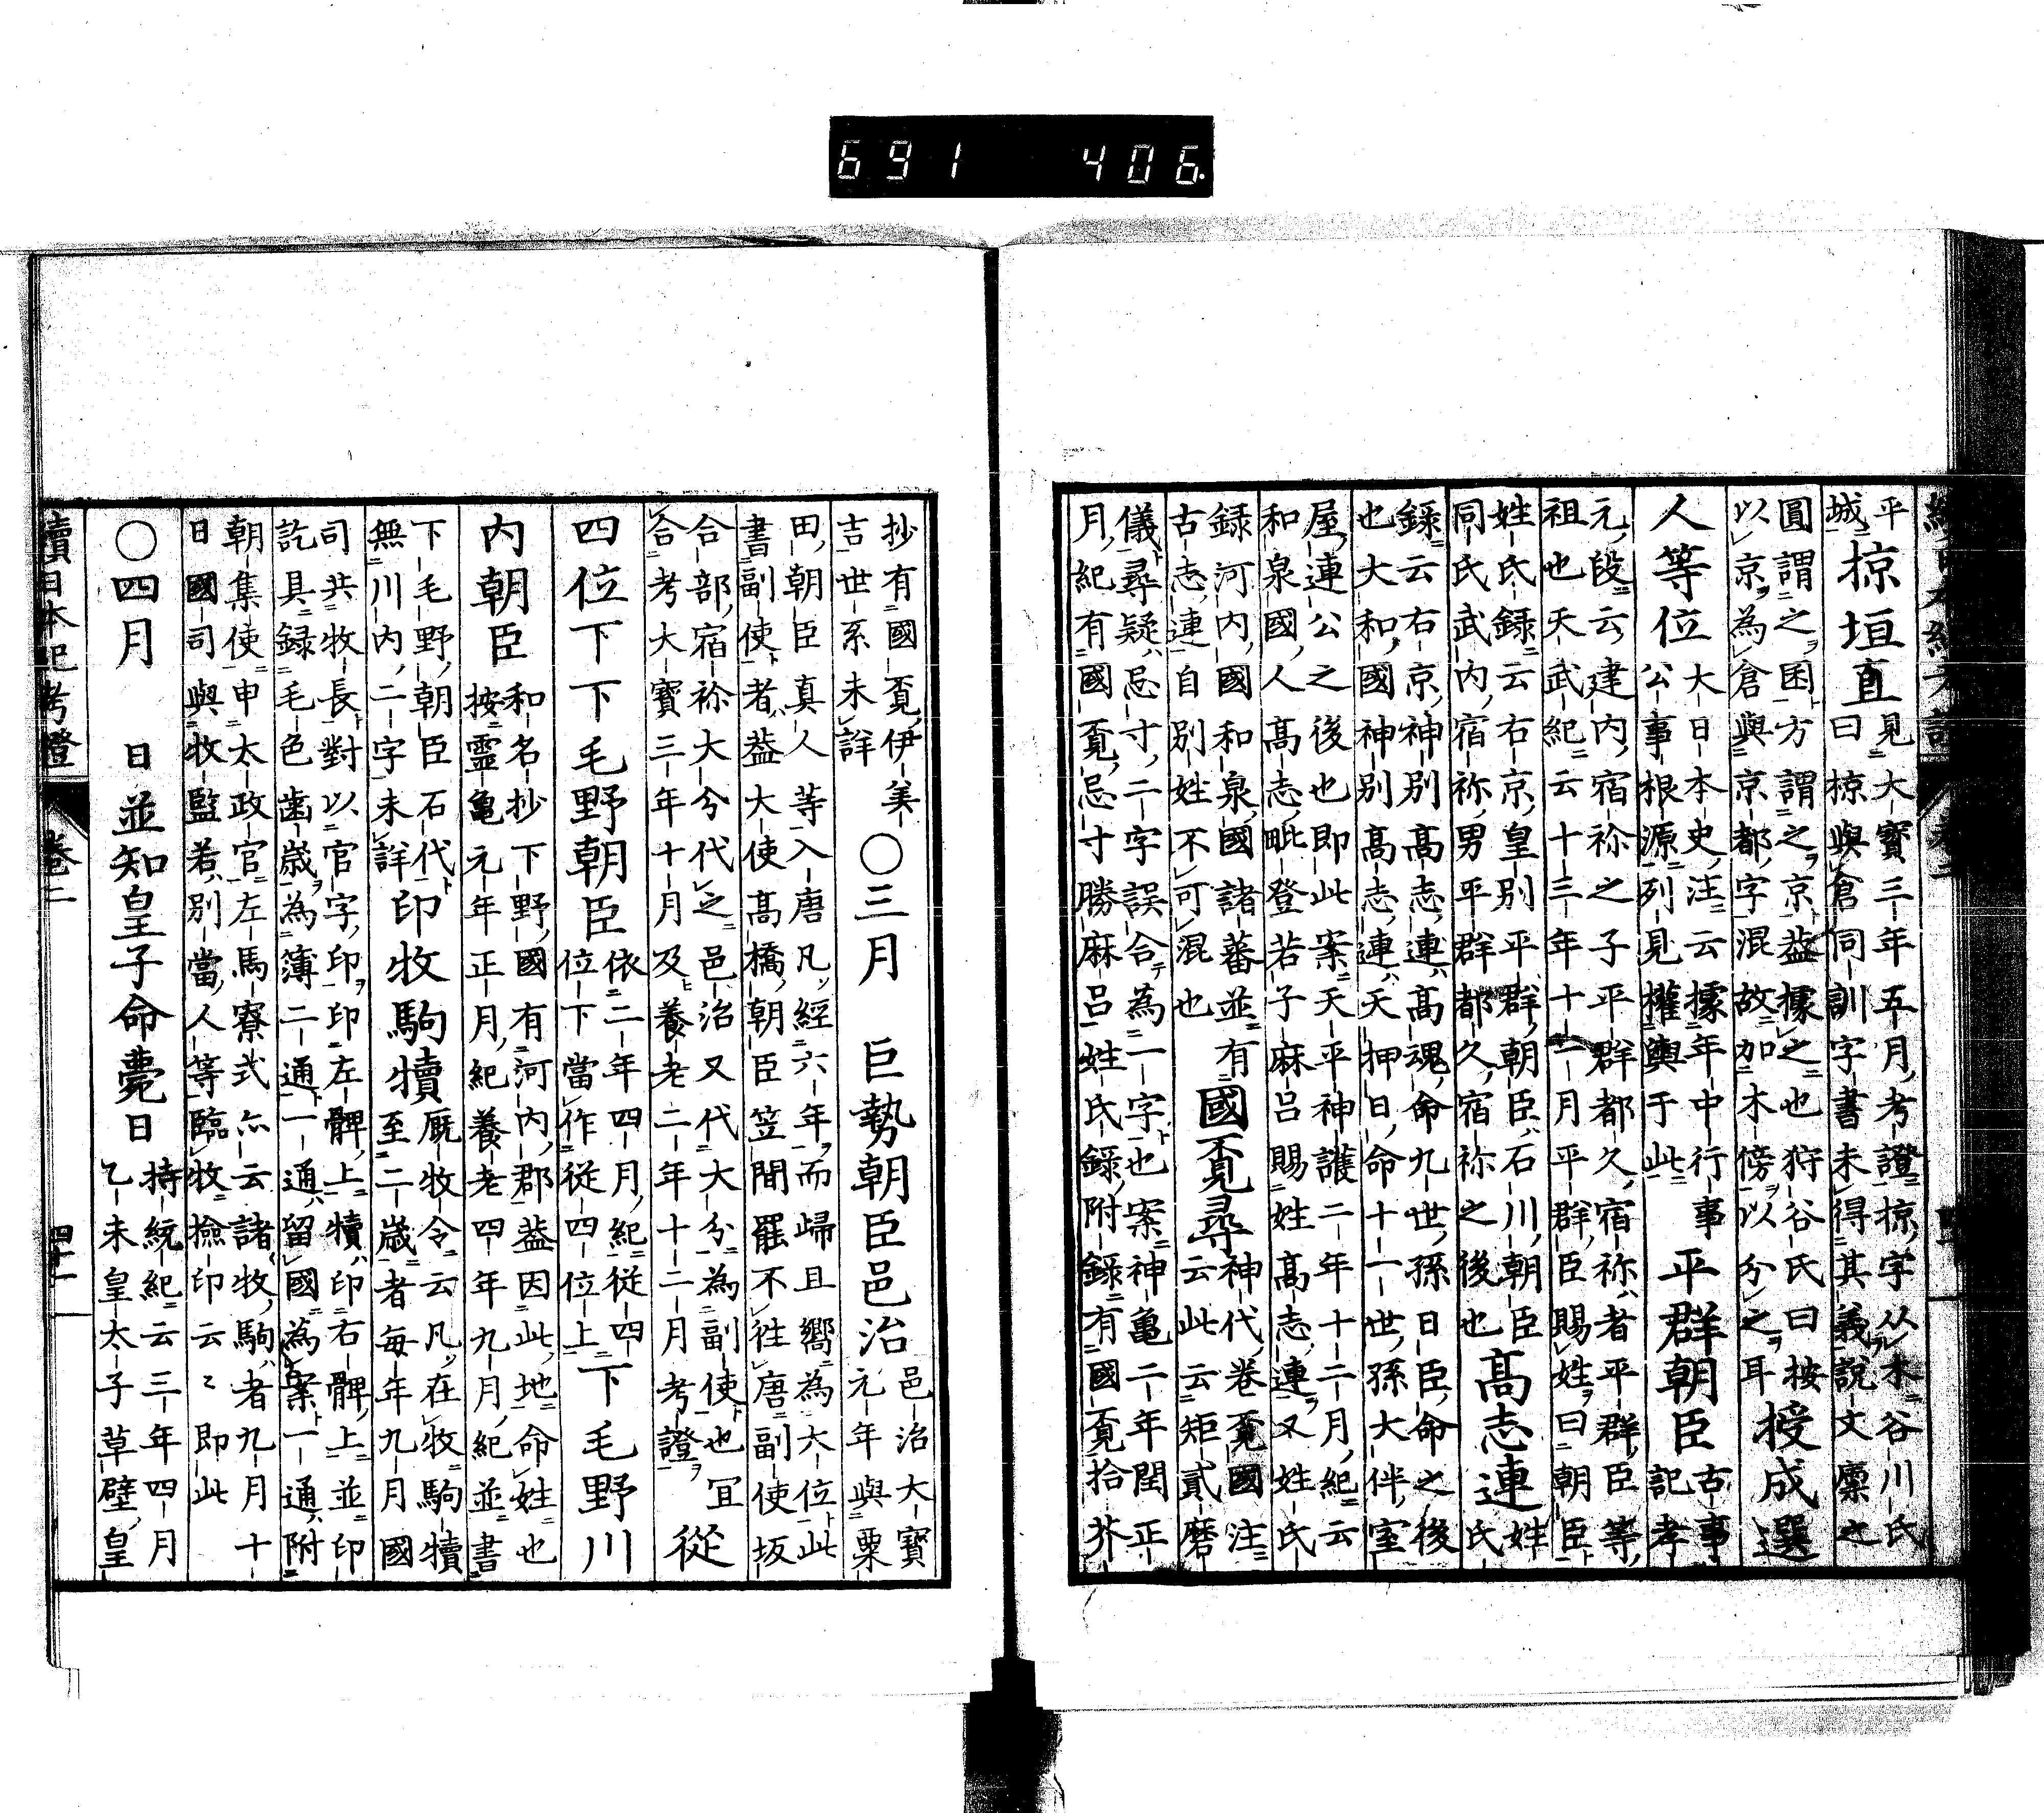 691 406
平城
椋垣直
見大寶三年五月考證椋字从木谷川氏
曰椋與倉同訓字書未得其義説文稟之
圓謂之囷方謂之京蓋據之也狩谷氏曰按
以京為倉與京都字混故加木傍以分之耳
授成選
人等位
大日本史注云據年中行事
公事根源列見擢輿于此
平群朝臣
古事
記孝
元段云建内宿祢之子平群都久宿祢者平群臣等
祖也天武紀云十三年十一月平群臣賜姓曰朝臣
姓氏録云右京皇別平群朝臣石川朝臣
同氏武内宿祢男平群都久宿祢之後也
高志連
姓
氏
録云右京神別高志連高魂命九世孫日臣命之後
也大和國神別高志連天押日命十一世孫大伴室
屋連公之後也即此案天平神護二年十二月紀云
和泉國人高志毗登若子麻呂賜姓高志連又姓氏
録河内國和泉國諸蕃並有
古志連自別姓不可混也
國覔尋
神代卷覔國注
云此云矩貳磨
儀尋疑忌寸二字誤合為一字也案神龜二年閏正
月紀有國覔忌寸勝麻呂姓氏録附録有國覔拾芥
抄有國覔伊美
吉世系未詳
○三月
巨勢朝臣邑治
邑治大寶
元年與粟
田朝臣真人等入唐凡經六年而歸且嚮為大位此
書副使者蓋大使高橋朝臣笠間罷不往唐副使坂
合部宿祢大分代之邑治又代大分為副使也宜
合考大寶三年十月及養老二年十二月考證
從
四位下下毛野朝臣
依二年四月紀從四
位下當作從四位上
下毛野川
内朝臣
和名抄下野國有河内郡蓋因此地命姓也
按靈龜元年正月紀養老四年九月紀並書
下毛野朝臣石代
無川内二字未詳
印牧駒犢
厩牧令云凡在牧駒犢
至二歳者毎年九月國
司共牧長對以官字印印左髀上犢印右髀上並印
訖具録毛色歯歳為簿二通一通留國為案一通附
朝集使申太政官左馬寮式亦云諸牧駒者九月十
日國司與牧監若別當人等臨牧檢印云〻即此
○四月
日並知皇子命薨日
持統紀云三年四月
乙未皇太子草壁皇
續日本紀考證
卷二
四十一